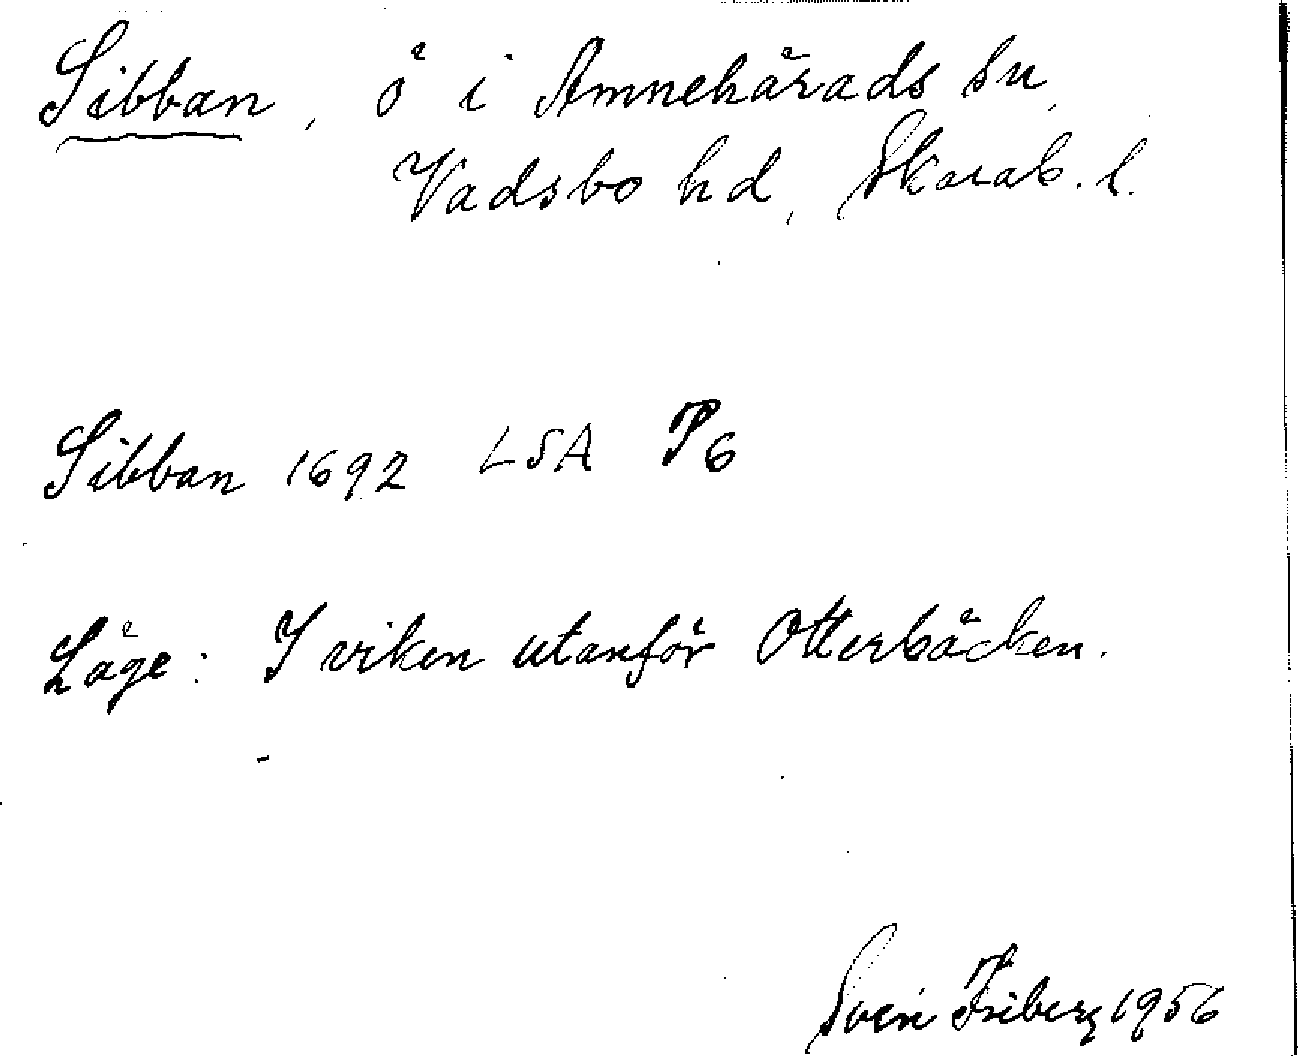 Sibban, ö i Amnehärads sn,
Vadsbo hd, Skarab. l.
Sibban 1692 LSA P6
Läge: I viken utanför Otterbäcken.
Sven Friberg 1956